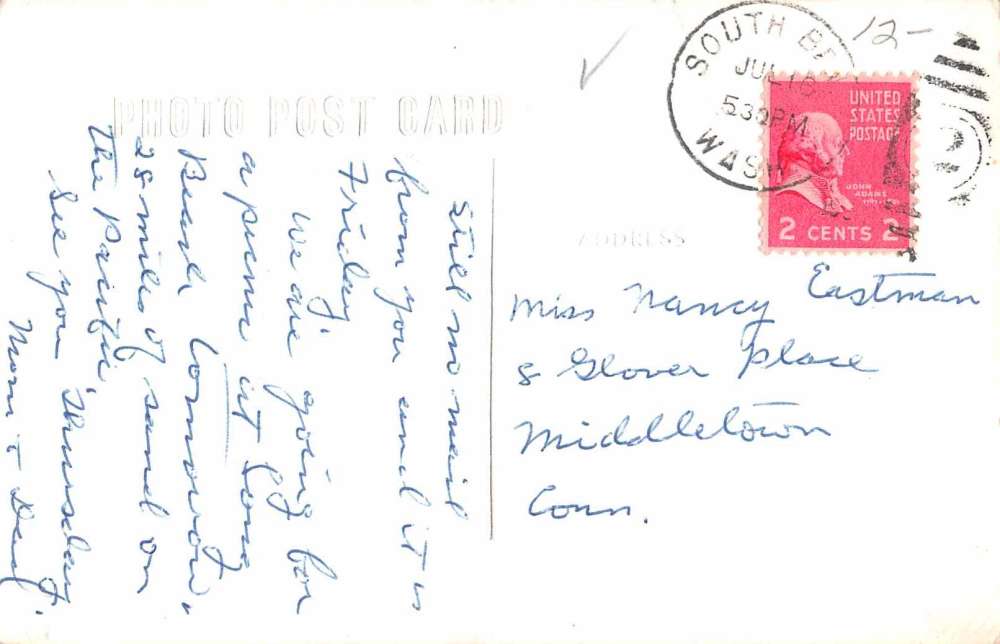 PHOTO POST CARD
ADDRESS
12-
SOUTH BE
JUL 16
530PM
WASH
UNITED
STATES
POSTAGE
JOHN
ADAMS
2 CENTS 2
2
Still no mail
from you and it is
Friday.
We are going for
a picnic at Long
Beach tomorrow,
28 miles of sand on
the Pacific.
See you Thursday,
Mom + Dad.
Miss Nancy Eastman
8 Glover Place
Middletown
Conn.